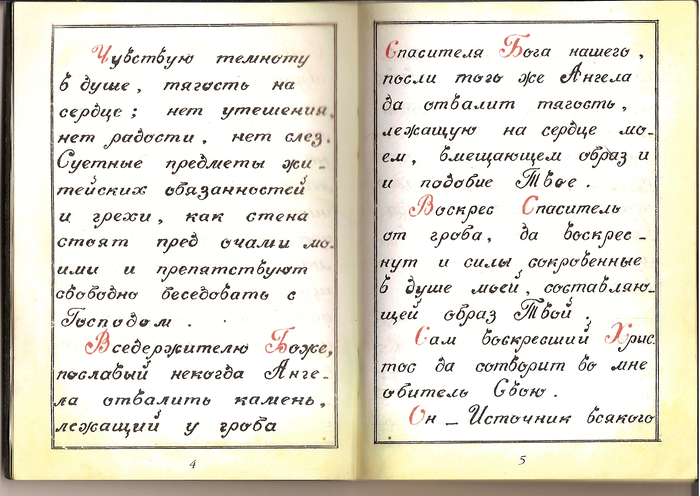 Чувствую темноту
в душе, тягость на
сердце; нет утешения,
нет радости, нет слез.
Суетные предметы жи-
тейских обязанностей
и грехи, как стена
стоят пред очами мо-
ими и препятствуют
свободно беседовать с
Господом.
Вседержителю Боже,
пославый некогда Анге-
ла отвалить камень,
лежащий у гроба
4
Спасителя Бога нашего,
посли того же Ангела
да отвалит тягость,
лежащую на сердце мо-
ем, вмещающем образ и
и подобие Твое.
Воскрес Спаситель
от гроба, да воскрес-
нут и силы сокровенные
в душе моей, составляю-
щей образ Твой.
Сам воскресший Хрис
тос да сотворит во мне
обитель Свою.
Он - Источник всякого
5